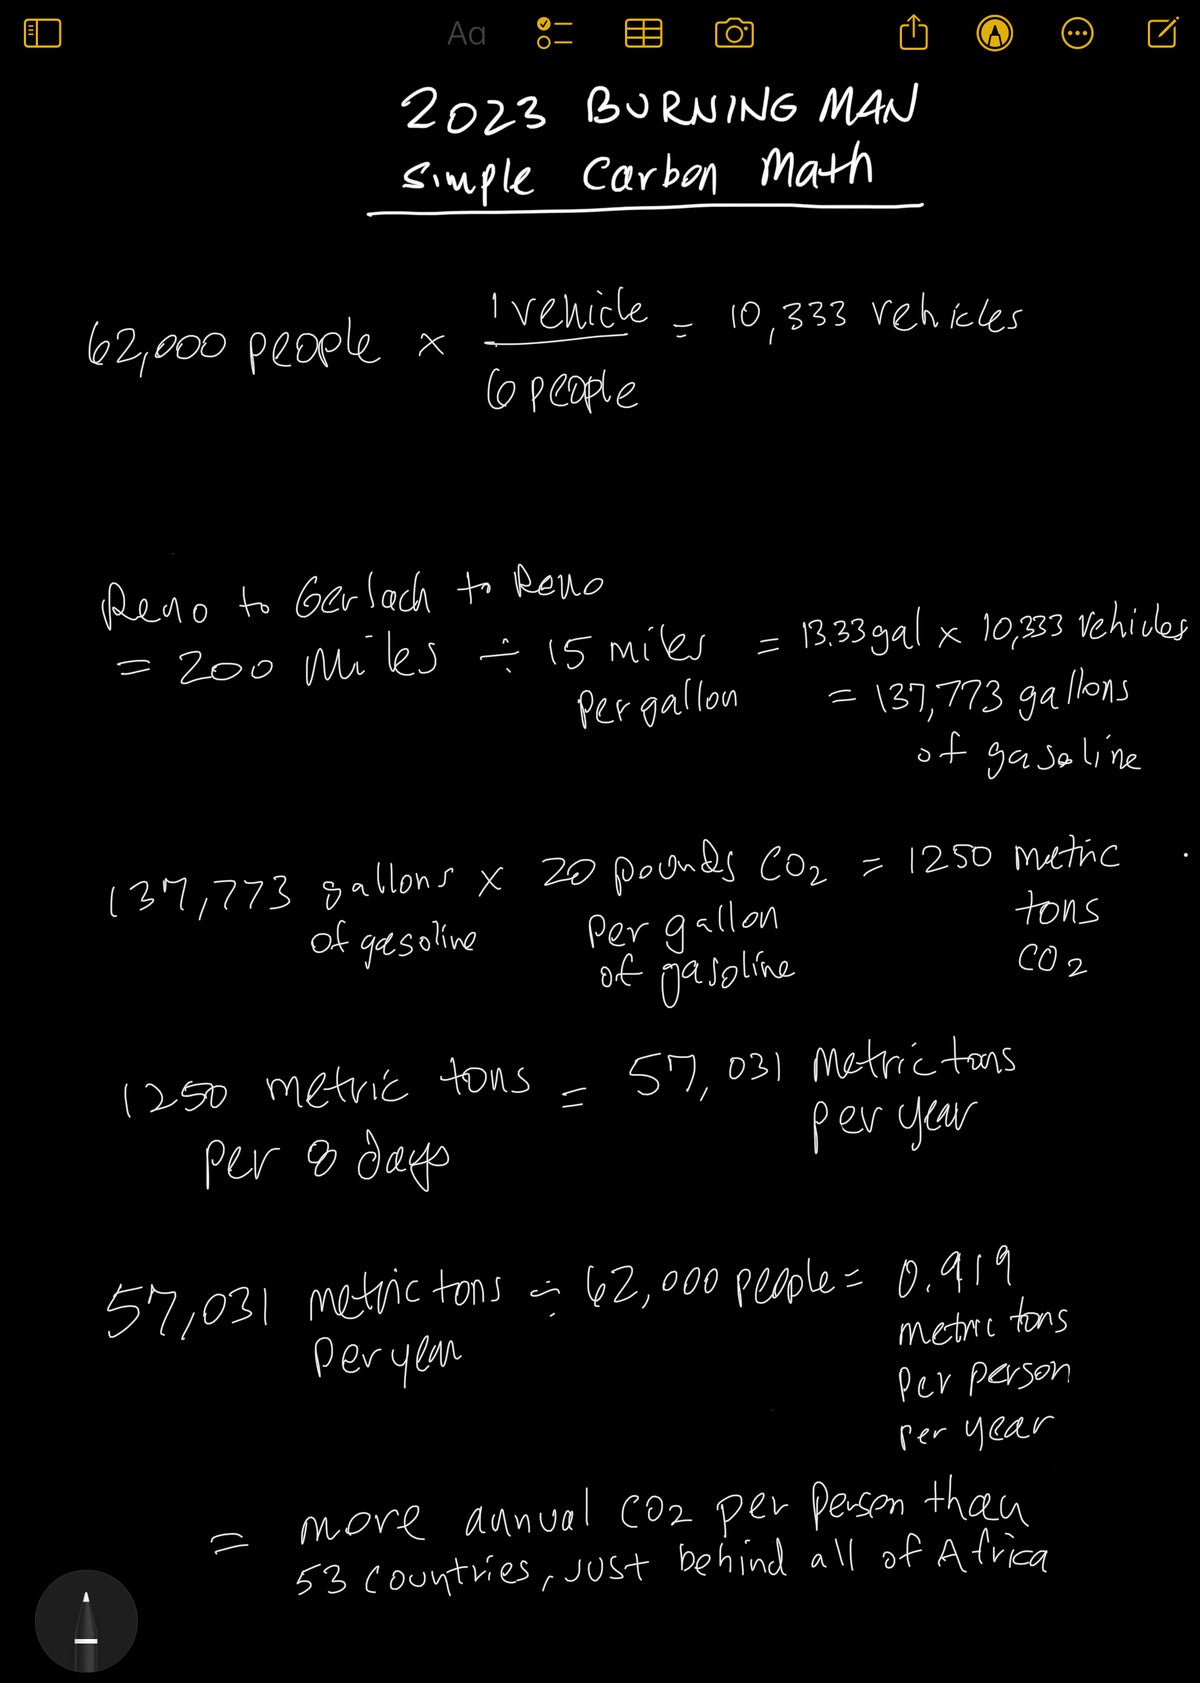 Aa
2023 BURNING MAN
Simple Carbon Math
62,000 people × 1 vehicle = 10,333 vehicles
6 people
Reno to Gerlach to Reno
= 200 miles ÷ 15 miles = 13.33 gal × 10,333 vehicles
per gallon = 137,773 gallons
of gasoline
137,773 gallons × 20 pounds CO2 = 1250 metric
of gasoline per gallon tons
of gasoline CO2
1250 metric tons = 57,031 metric tons
per 8 days per year
57,031 metric tons ÷ 62,000 people = 0.919
per year metric tons
per person
per year
= more annual CO2 per person than
53 countries, just behind all of Africa